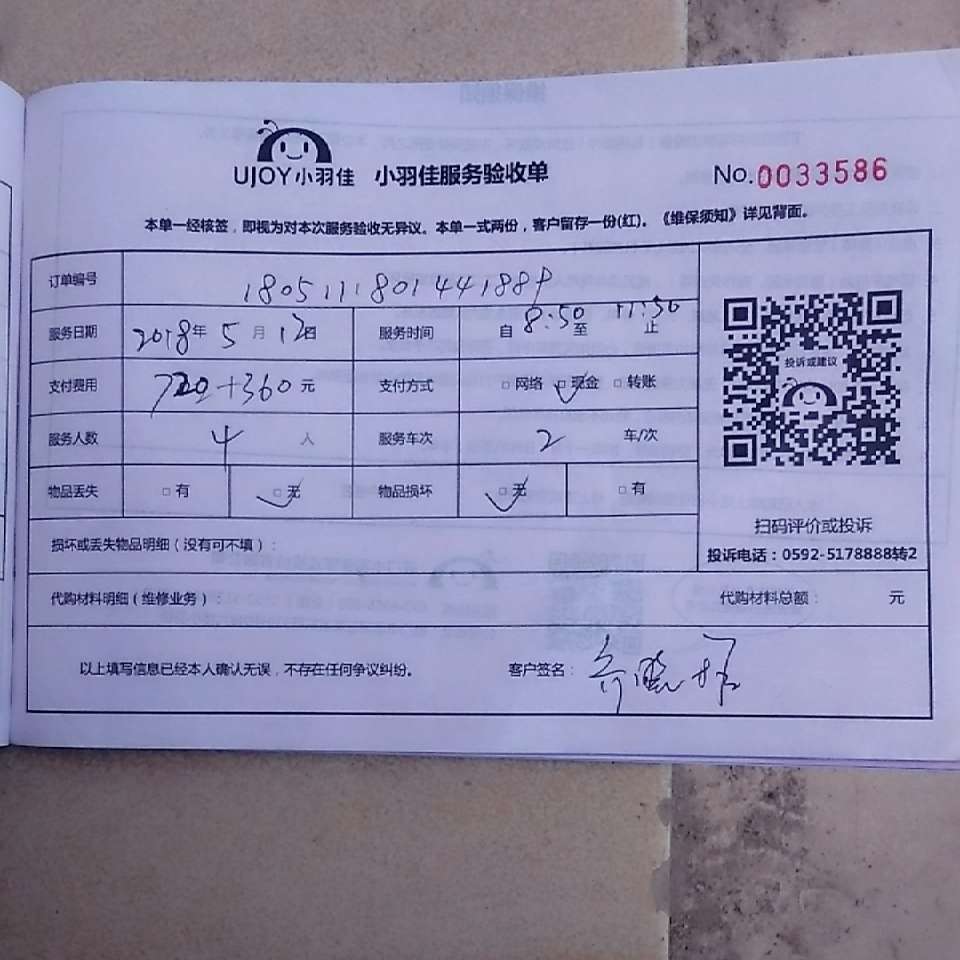 UJOY小羽佳 小羽佳服务验收单 No.0033586
本单一经核签，即视为对本次服务验收无异议。本单一式两份，客户留存一份(红)。《维保须知》详见背面。
订单编号
服务日期 2018年 5月 12日 服务时间 自 8:50 至 11:50 止
支付费用 720+360 元 支付方式 □网络 ☑现金 □转账
投诉或建议
服务人数 4 人 服务车次 2 车/次
物品丢失 □有 ☑无 物品损坏 ☑无 □有
扫码评价或投诉
损坏或丢失物品明细（没有可不填）：
投诉电话：0592-5178888转2
代购材料明细（维修业务）： 代购材料总额： 元
以上填写信息已经本人确认无误，不存在任何争议纠纷。 客户签名：